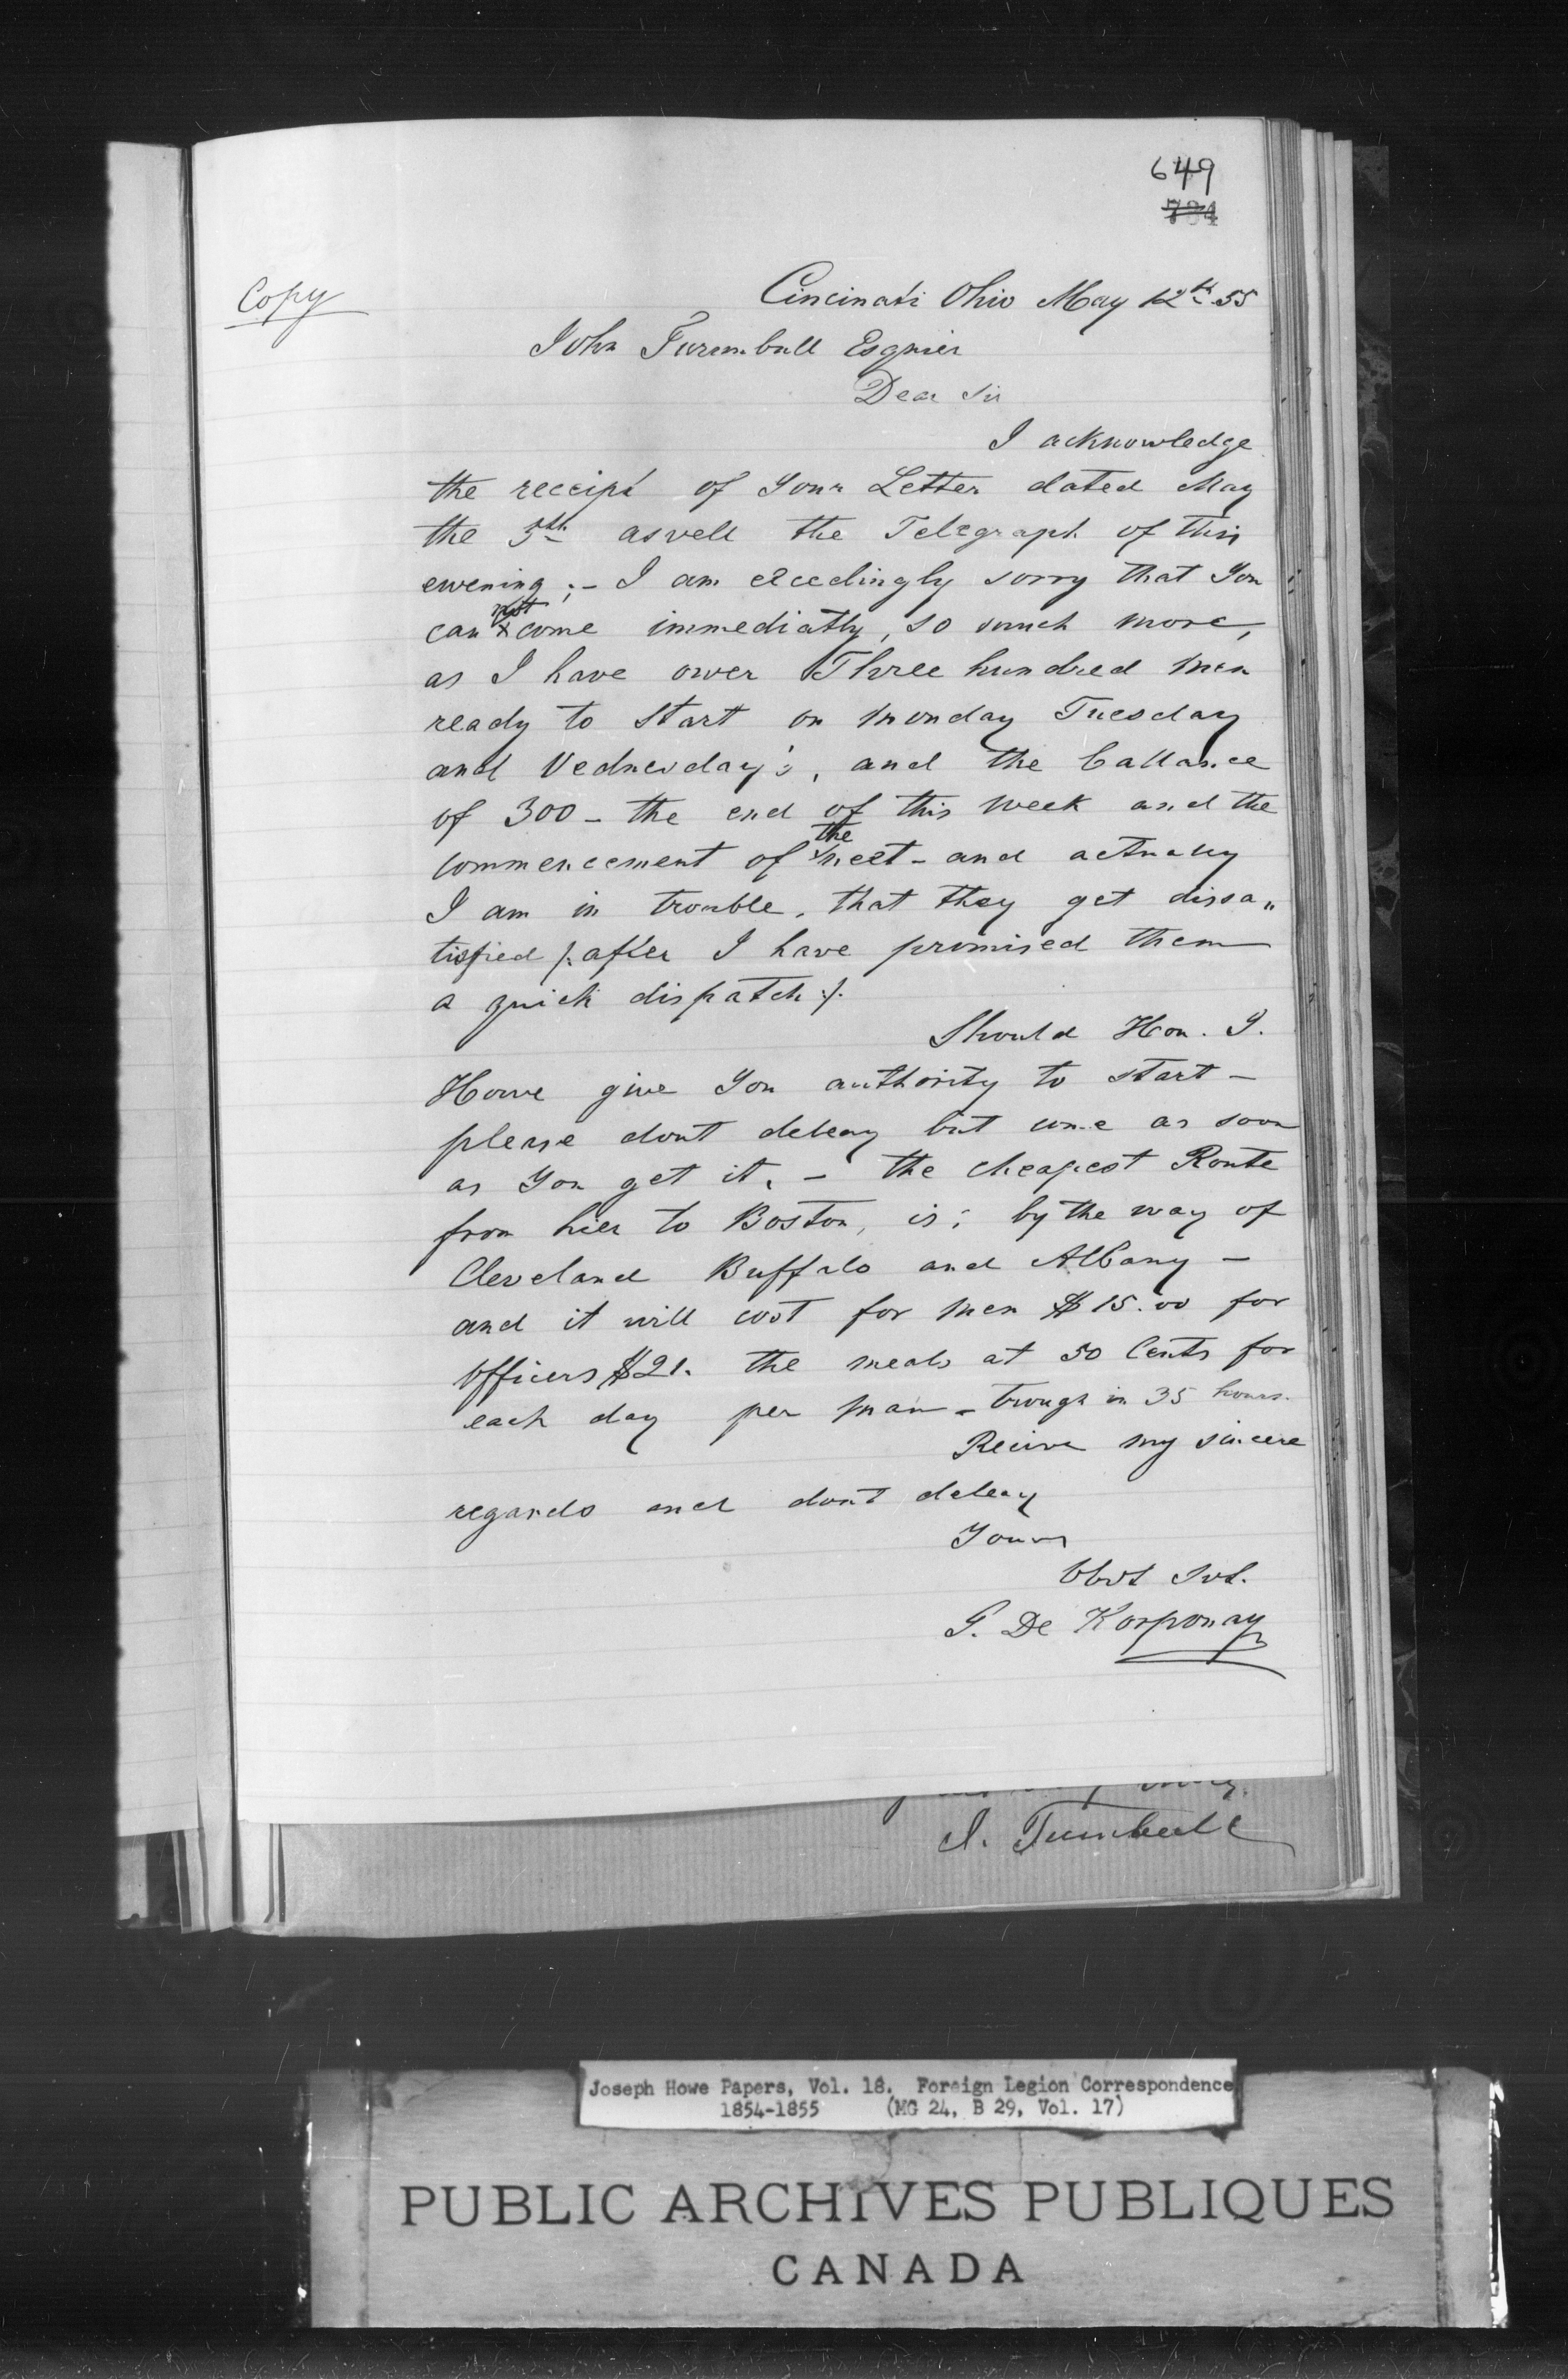 649
734
Copy
Cincinati Ohio May 12th 55
John Turnbull Esquier
Dear Sir
I acknowledge
the receipt of Your Letter dated May
the 5th asvell the Telegraph of this
ewening ;- I am excedingly sorry that You
can not come immediatly, so much more,
as I have ower Three hundred men
ready to start on Monday Tuesday
and Vednesday's, and the ballance
of 300 - the end of this week and the
commencement of the next - and actually
I am in trouble, that they get dissa„
tisfied /: after I have promised them
a quick dispatch :/.
Should Hon. J.
Howe give You authority to start -
please dont deleay but come as soon
as You get it, - the cheapest Route
from hier to Boston, is; by the way of
Cleveland Buffalo and Albany -
and it will cost for men $15.00 for
Officers $21. the meals at 50 Cents for
each day per man - trough in 35 hours.
Recive my sincere
regards and dont deleay
Yours
Obdt Svt.
G. De Korponay
J. Turnbull
Joseph Howe Papers, Vol. 18. Foreign Legion Correspondence
1854-1855 (MG 24, B 29, Vol. 17)
PUBLIC ARCHIVES PUBLIQUES
CANADA